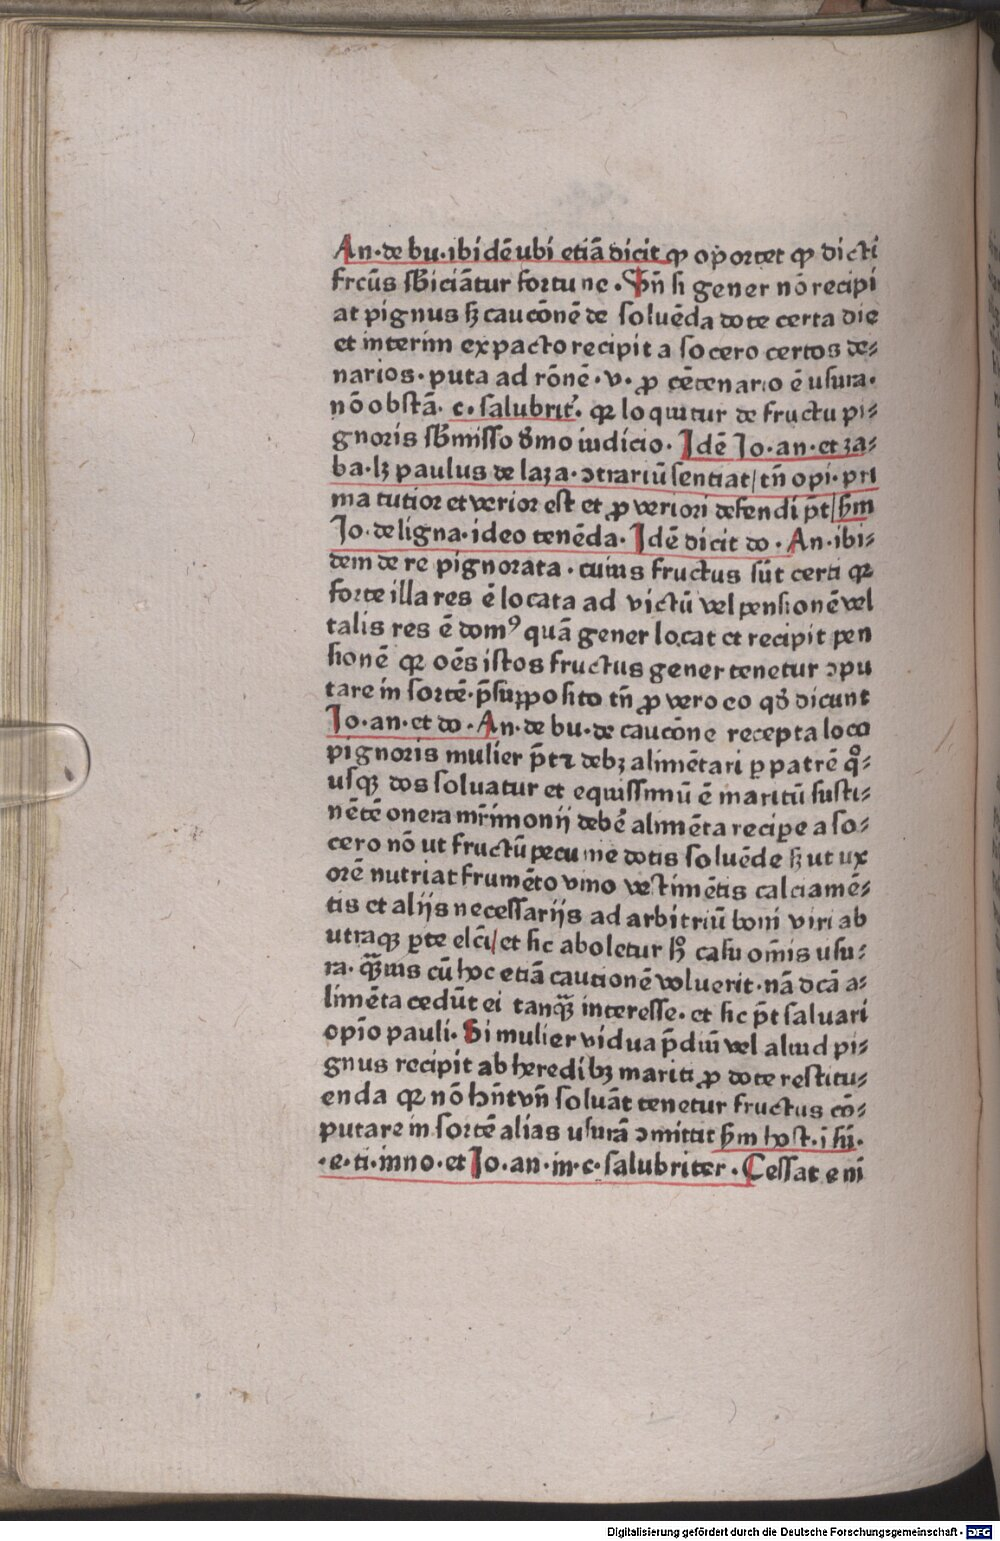 An·de bu·ibidē ubi etiā dicit ꝙ oportet ꝙ dicti
frc̄us sb̄iciātur fortune·Vn̄ si gener nō recipi
at pignus sꝫ caucōnē de soluēda dote certa die
et interim ex pacto recipit a socero certos de⸗
narios·puta ad rōnē·v·ꝓ cētenario ē usura·
nō obstā·c·salubrit̄·qꝛ loquitur de fructu pi⸗
gnoris sb̄misso d̄mo iudicio·Idē Io·an·et za⸗
ba·lꝫ paulus de laza·ↄtrariū sentiat/tn̄ opi·pri
ma tutior et verior est et ꝓ veriori defendi p̄t/sm̄
Io·de ligna·ideo tenēda·Idē dicit do·An·ibi⸗
dem de re pignorata·cuius fructus sūt certi qꝛ
forte illa res ē locata ad victū vel pensionē vel
talis res ē domꝰ quā gener locat et recipit pen
sionē qꝛ oēs istos fructus gener tenetur ↄpu
tare in sortē·p̄supposito tn̄ ꝓ vero eo qd̄ dicunt
Io·an·et do·An·de bu·de caucōne recepta loco
pignoris mulier p̄t ⁊ debꝫ alimētari ꝑ patrē qͦ⸗
usqꝫ dos soluatur et equissimū ē maritū susti⸗
nētē onera mr̄imonij debē alimēta recipe a so⸗
cero nō ut fructū pecunie dotis soluēde sꝫ ut ux
orē nutriat frumēto vino vestimētis calciamē⸗
tis et alijs necessarijs ad arbitriū boni viri ab
utraqꝫ ꝑte elc̄i/et sic aboletur hͦ casu om̄is usu⸗
ra·qꝫuis cū hoc etiā cautionē voluerit·nā dc̄a a⸗
limēta cedūt ei tanqꝫ interesse·et sic p̄t saluari
opīo pauli·Si mulier vidua p̄diū vel aliud pi⸗
gnus recipit ab heredibꝫ mariti ꝓ dote restitu⸗
enda qꝛ nō hn̄t vn̄ soluāt tenetur fructus cō⸗
putare in sortē alias usurā ↄmittit sm̄ host·i sū·
·e·ti·inno·et Io·an·in·c·salubriter·Cessat eni
Digitalisierung gefördert durch die Deutsche Forschungsgemeinschaft - DFG